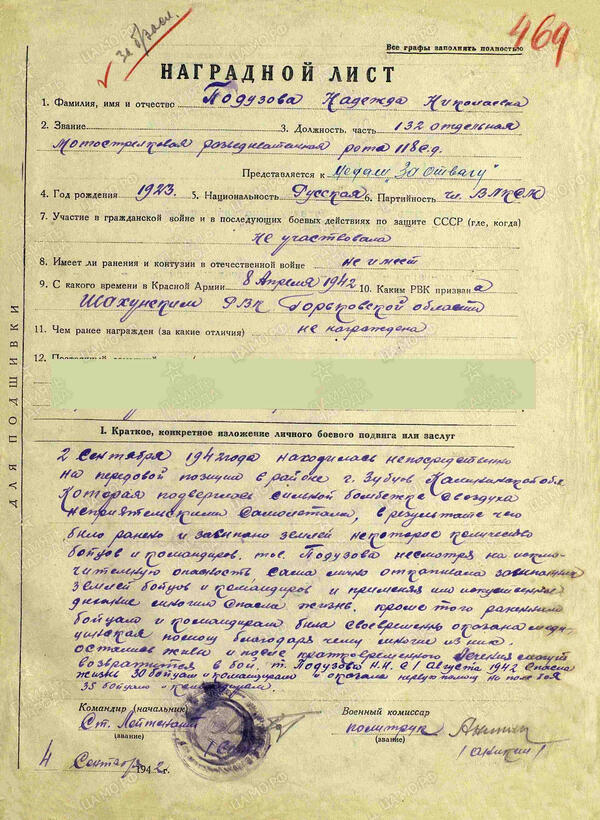 За отваг.
469
Все графы заполнять полностью
НАГРАДНОЙ ЛИСТ
1. Фамилия, имя и отчество Подузова Надежда Николаевна
2. Звание 3. Должность, часть 132 отдельная
Мотострелковая разведывательная рота 118 сд.
Представляется к медали "За отвагу"
4. Год рождения 1923. 5. Национальность Русская 6. Партийность чл. ВЛКСМ
7. Участие в гражданской войне и в последующих боевых действиях по защите СССР (где, когда)
не участвовала
8. Имеет ли ранения и контузии в отечественной войне не имеет
9. С какого времени в Красной Армии 8 Апреля 1942 10. Каким РВК призвана
Шахунским РВК Горьковской области
11. Чем ранее награжден (за какие отличия) не награждена
12. Постоянный
ДЛЯ ПОДШИВКИ
I. Краткое, конкретное изложение личного боевого подвига или заслуг
2 Сентября 1942 года находилась непосредственно
на передовой позиции в районе г. Зубцов Калининской обл.
Которая подверглась сильной бомбежке с воздуха
неприятельскими самолетами, в результате чего
было ранено и завалено землей некоторое количество
бойцов и командиров. тов. Подузова несмотря на исклю-
чительную опасность сама лично откапывала заваленных
землей бойцов и командиров и применяя им искуственное
дыхание многим спасла жизнь. кроме того раненным
бойцам и командирам была своевременно оказана меди-
цинская помощ благодаря чему многие из них
остались живы и после кратковременного лечения смогут
возвратится в бой. т. Подузова Н.Н. с 1 августа 1942 спасла
жизнь 30 бойцам и командирам и оказала первую помощь на поле боя
35 бойцам и командирам.
Командир (начальник) Военный комиссар
Ст. Лейтенант политрук
(звание) (звание)
(Аникин)
4 Сентября 1942 г.
ЦАМО.РФ